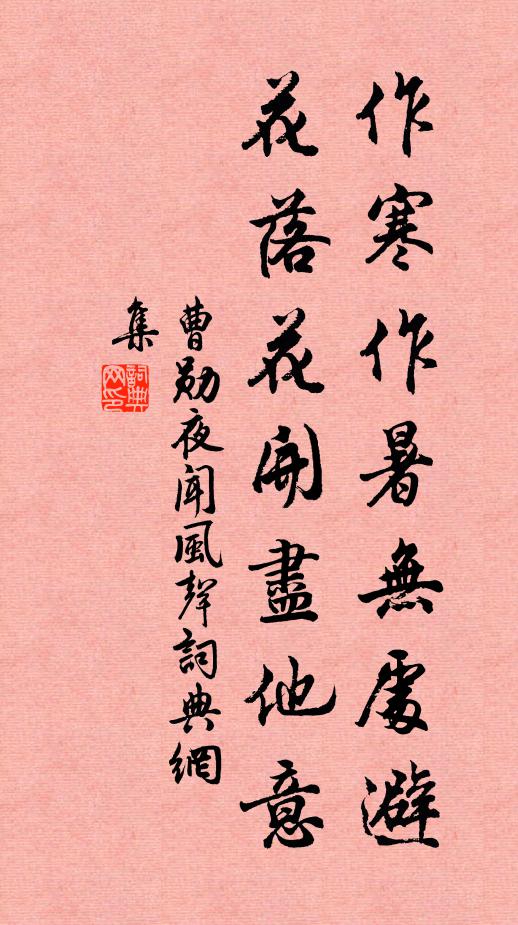 作寒作暑無處避
花落花開盡他意
曹勛夜聞風聲詞典網
集
詞典
网印